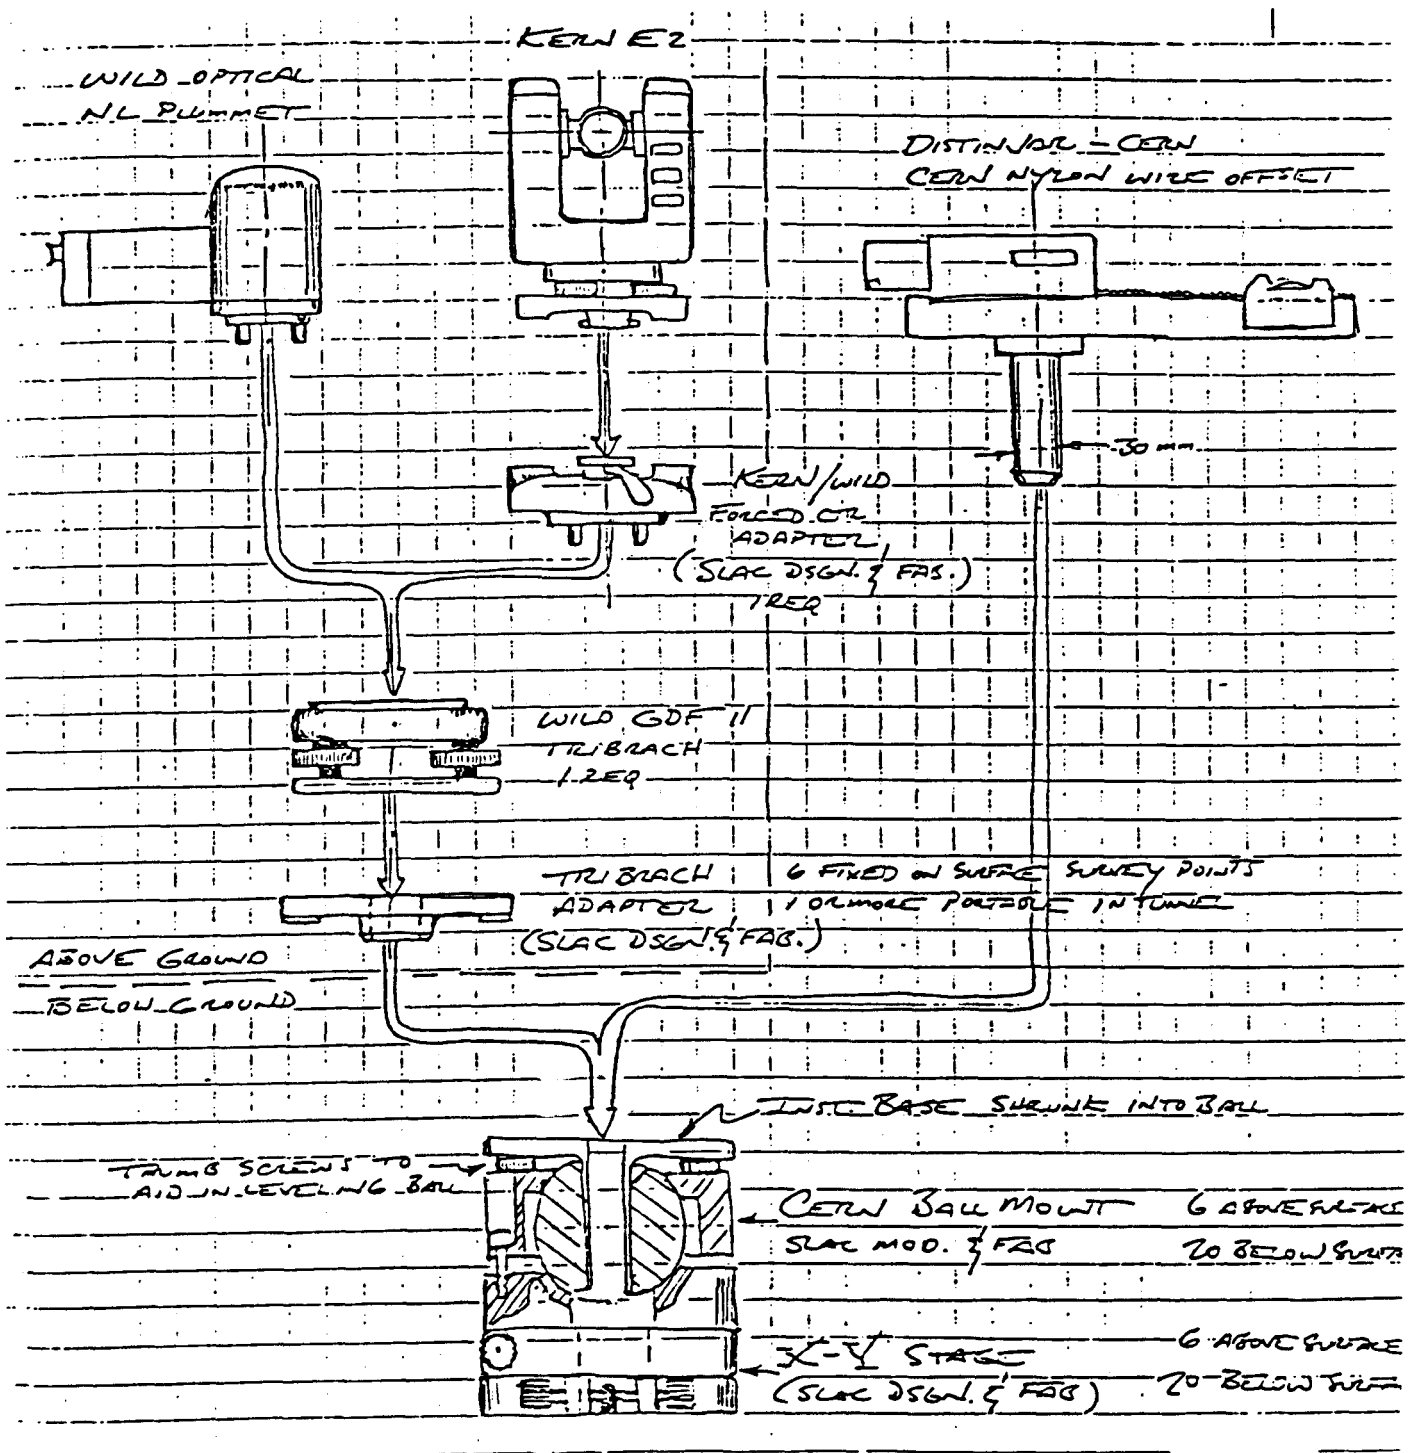 KERN E2
WILD OPTICAL
NL PLUMMET
DISTINVAR - CERN
CERN NYLON WIRE OFFSET
30 mm
KERN/WILD
FORCED CTR
ADAPTER
(SLAC DSGN. & FAB.)
1 REQ
WILD GDF 11
TRIBRACH
1 REQ
TRIBRACH
ADAPTER
(SLAC DSGN. & FAB.)
6 FIXED ON SURFACE SURVEY POINTS
1 OR MORE PORTABLE IN TUNNEL
ABOVE GROUND
BELOW GROUND
INST. BASE SHRUNK INTO BALL
THUMB SCREWS TO
AID IN LEVELING BALL
CERN BALL MOUNT
SLAC MOD. & FAB
6 ABOVE SURFACE
20 BELOW SURFA
X-Y STAGE
(SLAC DSGN. & FAB)
6 ABOVE SURFACE
20 BELOW